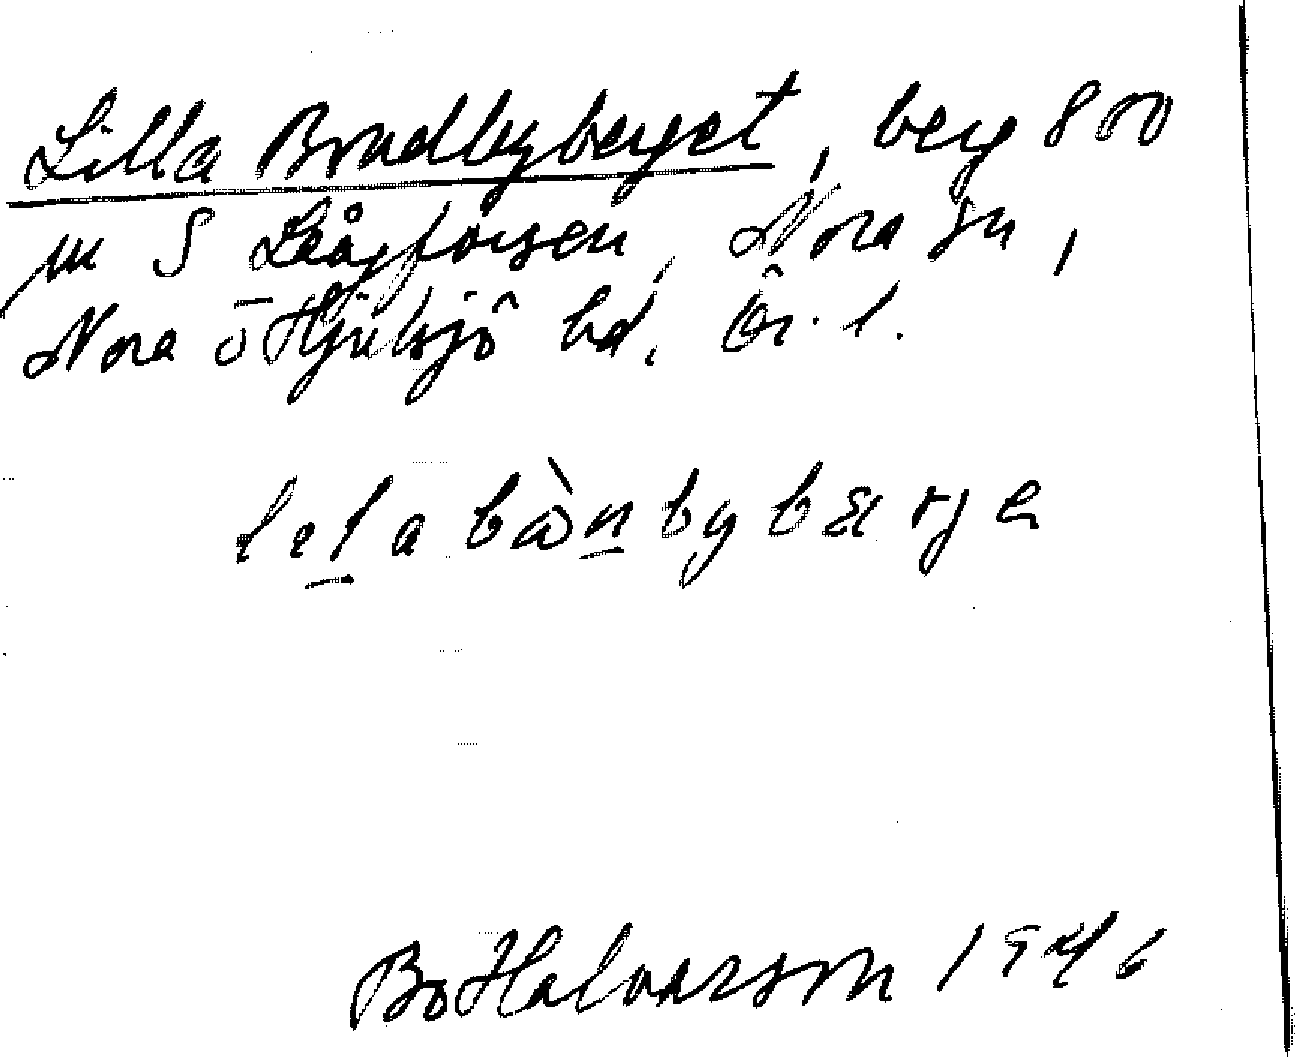 Lilla Bondbyberget, berg 800
m S Lågforsen, Nora sn,
Nora o Hjulsjö hd. Ör. l.
lela bànbybærje
Bo Halvarson 1946